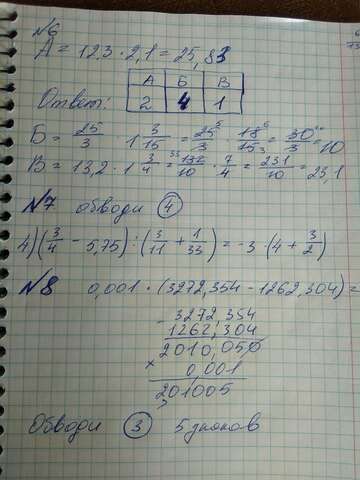 №6
А = 12,3 · 2,1 = 25,83
Ответ:
А Б В
2 4 1
Б = 25/3 · 1 3/15 = 25/3 · 18/15 = 30/3 = 10
В = 13,2 · 1 3/4 = 132/10 · 7/4 = 231/10 = 23,1
№7 обводи 4
4) (3/4 - 5,75) : (3/11 + 1/33) = -3 · (4 + 3/2)
№8 0,001 · (3272,354 - 1262,304) =
- 3272,354
1262,304
2010,050
× 0,001
201005
Обводи 3